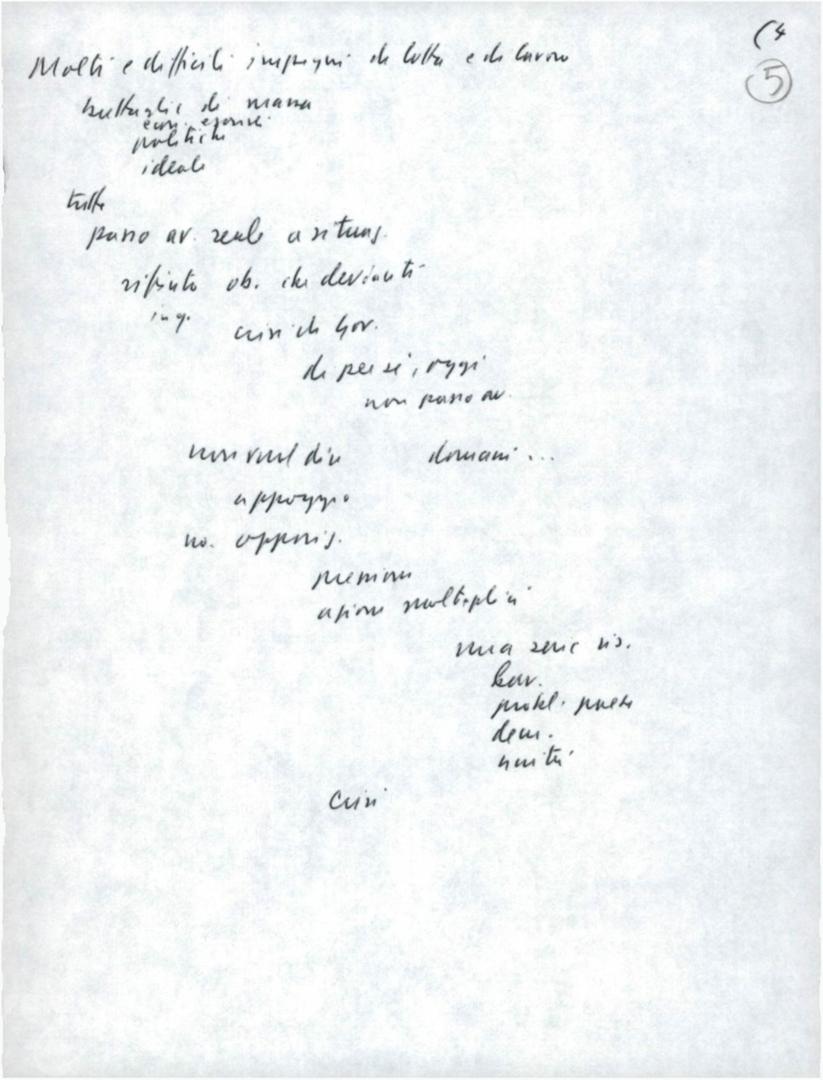 (4
5
Molti e difficili impegni di lotta e di lavoro
battaglie di massa
politiche
ideale
tutte
passo av. reale a
rifiuto ob. che devianti
ing.
crisi di gov.
di per sé, oggi
non passo av.
non vuol dire domani ...
appoggio
no. opposiz.
pressione
azione molteplici
una serie ris.
lav.
probl. paese
dem.
unità
Crisi